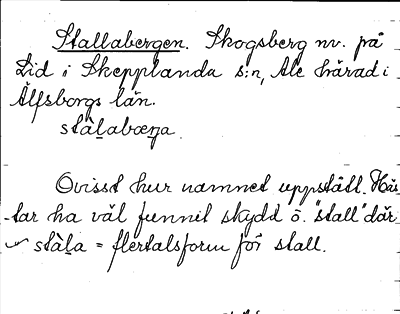 Stallabergen. Skogsberg nv. på
Lid i Skepplanda s:n, Ale härad i
Älfsborgs län.
stàlabæŋa.
Ovisst hur namnet uppstått. Häs-
tar ha väl funnit skydd o. "stall" där.
stàla = flertalsform för stall.